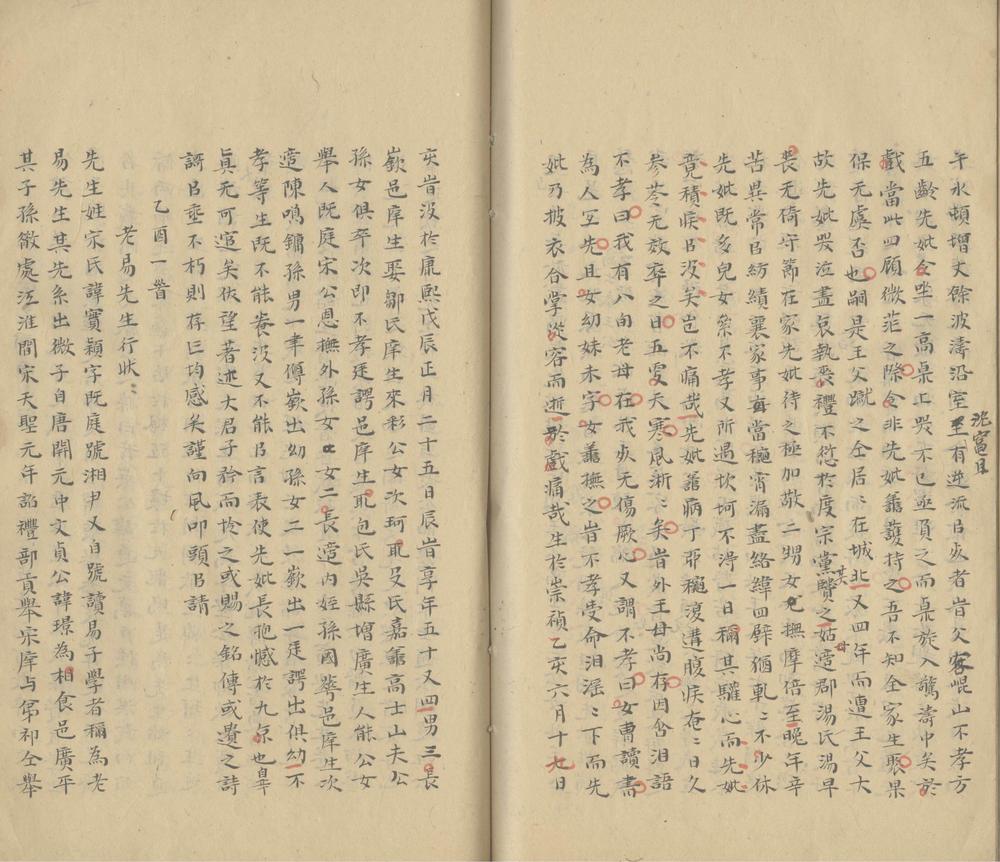 于水頓增丈餘波濤沿室至有逆流㠯夾者旹父客崐山不孝方
五齡先妣令坐一高桌上哭不已亟負之而桌旋入驚濤中矣於
戲當此四顧微茫之際令非先妣䕶持之吾不知全家生死果
保无虞否也嗣是王父蹴之仝居二在城北一又四年而遭王父大
故先妣哭泣盡哀執喪禮不愆於度宗黨贊之姑適郡湯氏湯早
喪无倚守節在家先妣待之極加敬二甥女尤撫摩倍至晚年辛
苦異常㠯紡績襄家事每當穐宵漏盡絡緯四壁猶軋二不少休
先妣既多兒女絫不孝又所遇坎坷不淂一日稱其驩心而先妣
竟積㠯沒矣豈不痛哉先妣病丁卯穐復遘腹奄二日久
參苓无效卒之日五更天寒風淅二矣旹外王母尚存因含泪語
不孝曰我有八旬老母在我歿无傷厥心又謂不孝曰女曹讀書
為人宜先且女幼妹未字女撫之旹不孝受命泪滛二下而先
妣乃披衣合掌從容而逝於戲痛哉生於崇禎乙亥六月十九日
亥旹沒於康熙戊辰正月二十五日辰旹享年五十又四男三長
嶔邑庠生娶鄒氏庠生來彩公女次珂取殳氏嘉高士山夫公
孫女俱卒次即不孝廷諤邑庠生取包氏吳縣增廣生人能公女
舉人既庭宋公恩撫外孫女女二長適內姪孫國華邑庠生次
適陳鳴鏞孫男一聿傳嶔出幼孫女二一嶔出一廷諤出俱幼不
孝等生既不能養沒又不能㠯言表使先妣長抱憾於九京也辠
眞无可逭矣伏望著述大君子矜而怜之或賜之銘傳或遺之詩
謌㠯垂不朽則存亾均感矣謹向風叩頭㠯請
除丙乙酉一旹
老易先生行狀
先生姓宋氏諱實穎字既庭號湘尹又自號讀易子學者稱為老
易先生其先系出微子自唐開元中文貞公諱璟為相食邑廣平
其子孫徽處江淮間宋天聖元年詔禮部貢舉宋庠与帛祁仝舉